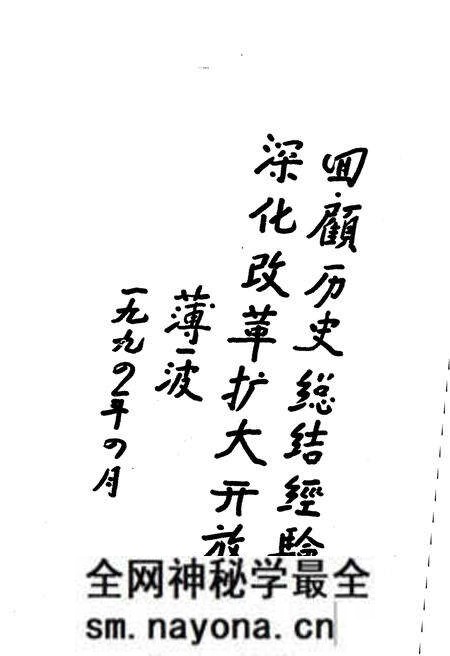 回顧历史総结經驗
深化改革扩大开放
薄一波
一九九四年四月
全网神秘学最全
sm.nayona.cn